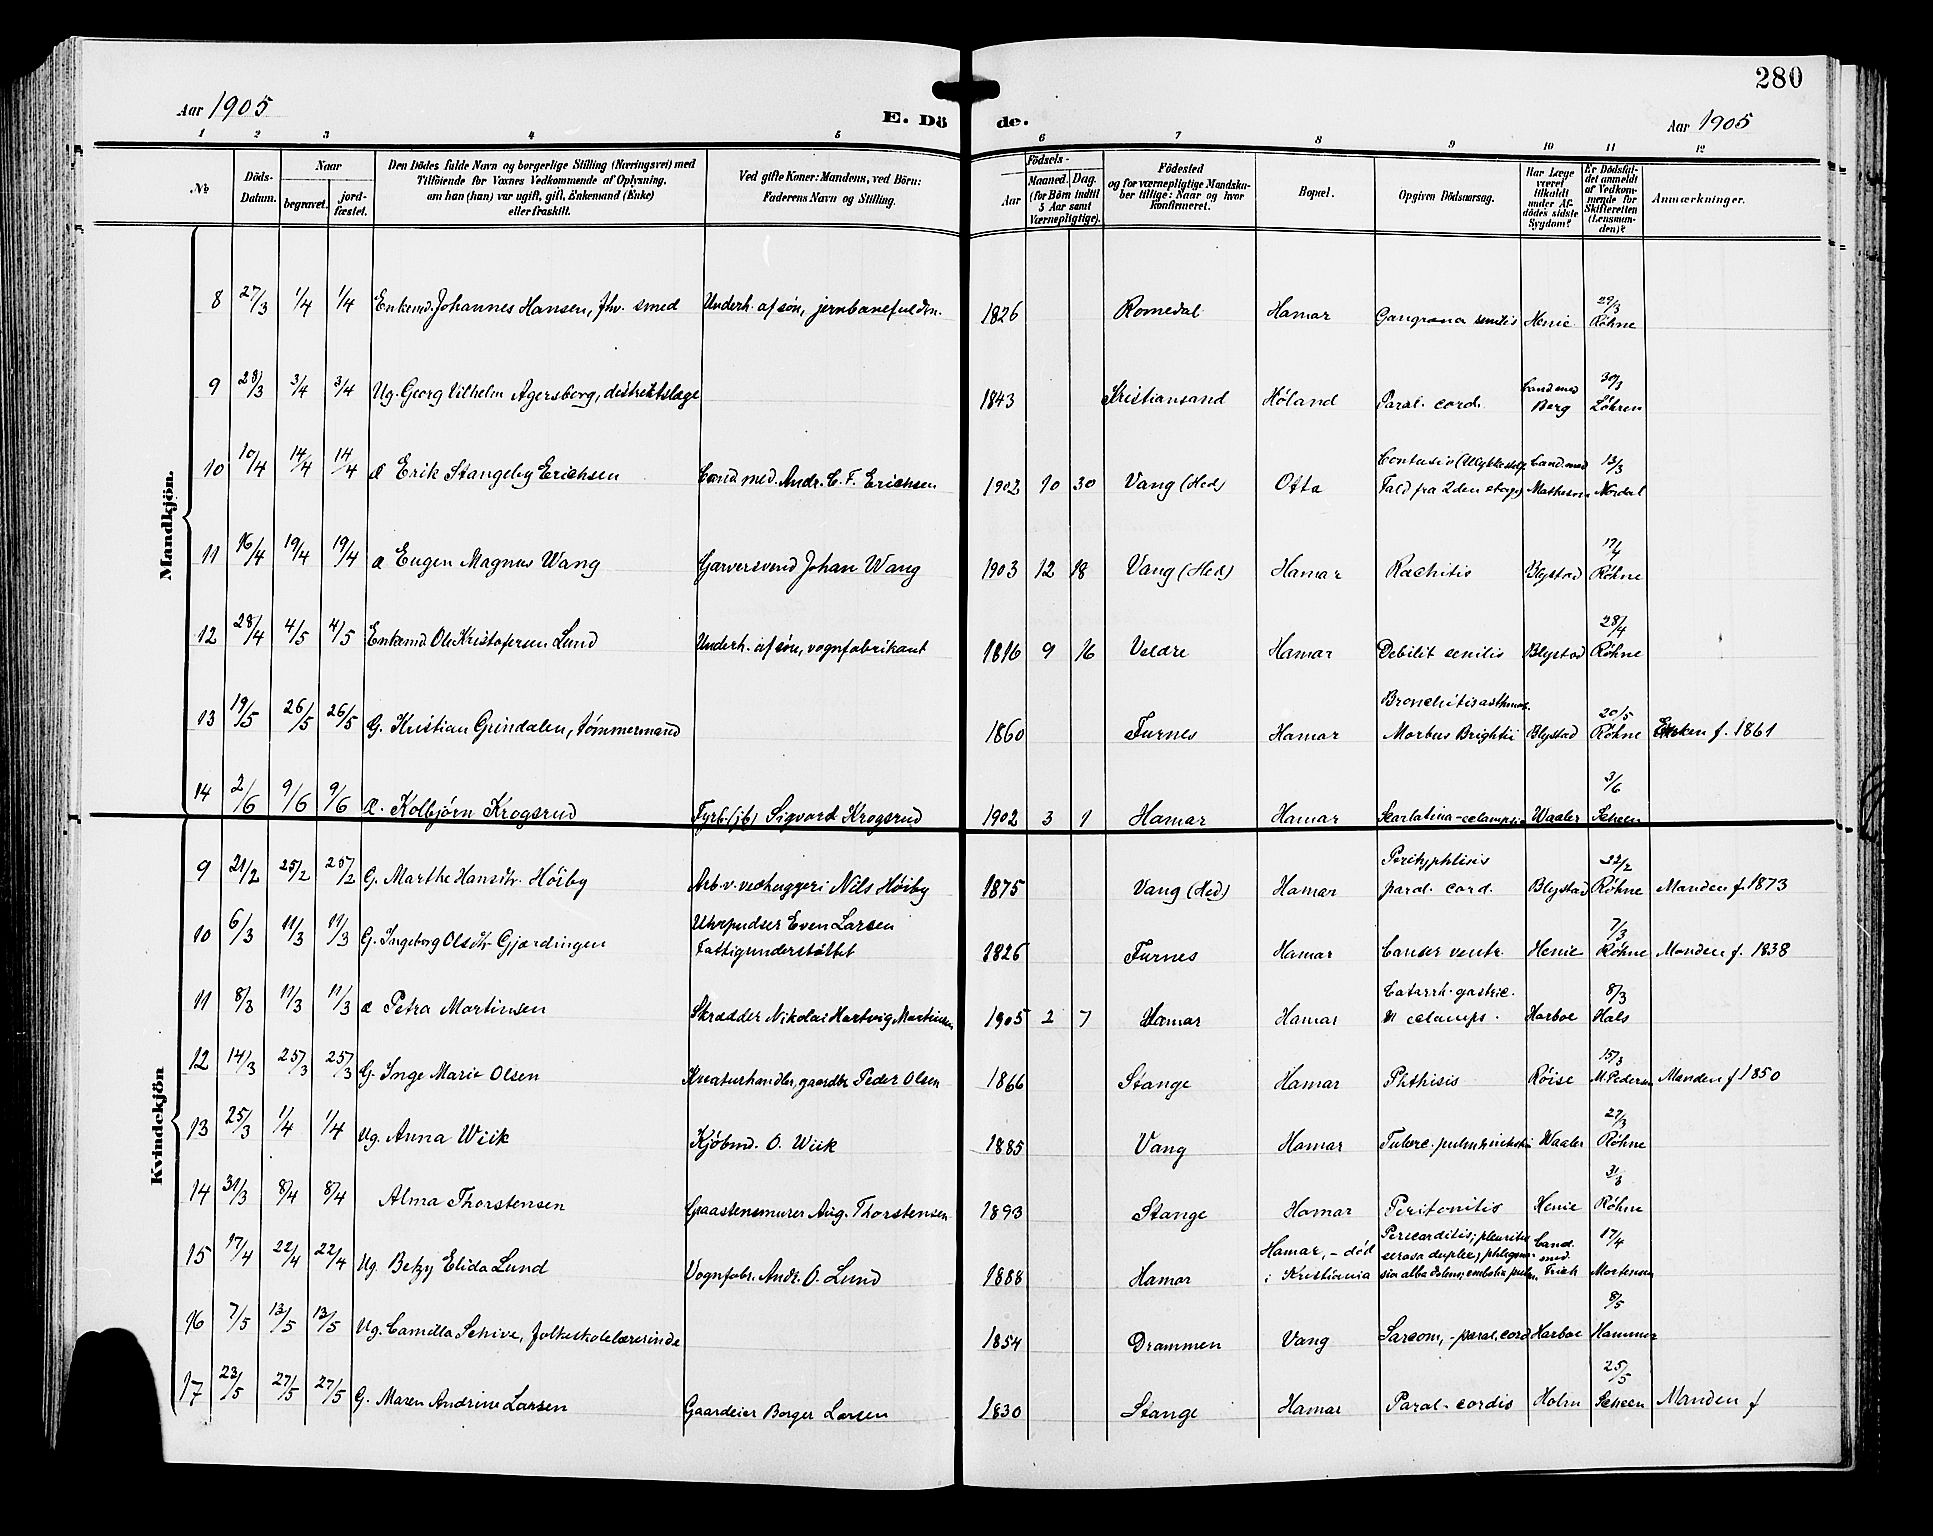 280
Aar 1905
E. Döde.
Aar 1905
1 2 3 4 5 6 7 8 9 10 11 12
No
Döds-Datum.
Naar
begravet.
jord-fæstet.
Den Dödes fulde Navn og borgerlige Stilling (Næringsvei) med
Tilföiende for Voxnes Vedkommende af Oplysning,
om han (hun) var ugift, gift, Enkemand (Enke)
eller fraskilt.
Ved gifte Koner: Mandens, ved Börn:
Faderens Navn og Stilling.
Födsels-
Aar
Maaned. Dag.
(for Börn indtil
5 Aar samt
Værnepligtige).
Födested
og for værnepligtige Mandska-
ber tillige: Naar og hvor
konfirmeret.
Bopæl.
Opgiven Dödsaarsag.
Har Læge
været
tilkaldt
under Af-
dödes sidste
Sygdom?
Er Dödsfal-
det anmeldt
af Vedkom-
mende for
Skifteretten
(Lensman-
den)?
Anmærkninger.
Mandkjön.
8 27/3 1/4 1/4 Enkemd. Johannes Hansen, fhv. smed Underh. af søn, jernbanefuldm. 1826 Romedal Hamar Gangræna senilis Henie 29/3 Røhne
9 28/3 3/4 3/4 Ug. Georg Vilhelm Agersborg, distriktslæge 1843 Kristiansand Høland Paral. cord. Cand med Berg 30/3 Løhren
10 10/4 14/4 14/4 æ Erik Stangeby Erichsen Cand med. Andr. C. F. Erichsen 1902 10 30 Vang (Hed) Otta Contusio (Ulykkestilf. Fald fra 2den etage) Cand. med Matheson 13/3 Nordal
11 16/4 19/4 19/4 æ Eugen Magnus Wang Garversvend Johan Wang 1903 12 18 Vang (Hed) Hamar Rachitis Blystad 17/4 Røhne
12 28/4 4/5 4/5 Enkemd Ole Kristofersen Lund Underh. af søn, vognfabrikant 1816 9 16 Veldre Hamar Debilit senilis Blystad 28/4 Røhne
13 19/5 26/5 26/5 G. Kristian Grindalen, tømmermand 1860 Furnes Hamar Bronchitis asthmat. Morbus Brightii Blystad 20/5 Røhne Enken f. 1861
14 2/6 9/6 9/6 Æ. Kolbjørn Krogsrud Fyrb. (jb) Sigvard Krogsrud 1902 3 1 Hamar Hamar Scarlatina-eclampsia Waaler 3/6 Scheen
Kvindekjön
9 21/2 25/2 25/2 G. Marthe Hansdtr. Høiby Arb. v. vedhuggeri Nils Høiby 1875 Vang (Hed) Hamar Perityphlitis paral. cord. Blystad 22/2 Røhne Manden f. 1873
10 6/3 11/3 11/3 G. Ingeborg Olsdtr Gjærdingen Uhrpudser Even Larsen Fattigunderstøttet 1826 Furnes Hamar Cancer ventr. Henie 7/3 Røhne Manden f. 1838
11 8/3 11/3 11/3 æ Petra Martinsen Skrædder Nikolai Hartvig Martinsen 1905 2 7 Hamar Hamar Catarrh. gastric. eclamps. Harboe 8/3 Hals
12 14/3 25/3 25/3 G. Inge Marie Olsen Kreaturhandler, gaardbr. Peder Olsen 1866 Stange Hamar Phthisis Røise 15/3 M. Pedersen Manden f 1850
13 25/3 1/4 1/4 Ug. Anna Wiik Kjøbmd. O. Wiik 1885 Vang Hamar Tuberc. pulm. Waaler 27/3 Røhne
14 31/3 8/4 8/4 Alma Thorstensen Graastensmurer Aug. Thorstensen 1893 Stange Hamar Peritonitis Henie 31/3 Røhne
15 17/4 22/4 22/4 Ug. Betzy Elida Lund Vognfabr. Andr. O. Lund 1888 Hamar Hamar, - død i Kristiania Pericarditis; pleuritis serosa duplex; phlegmasia alba dolens; embolia pulm. Cand. med. 17/4 Mortensen
16 7/5 13/5 13/5 Ug. Camilla Schive, folkeskolelærerinde 1854 Drammen Vang Sarcom, - paral. cord Harboe 8/5 Hammer
17 22/5 27/5 27/5 G. Maren Andrine Larsen Gaardeier Borger Larsen 1830 Stange Hamar Paral. cordis Holm 25/5 Scheen Manden f